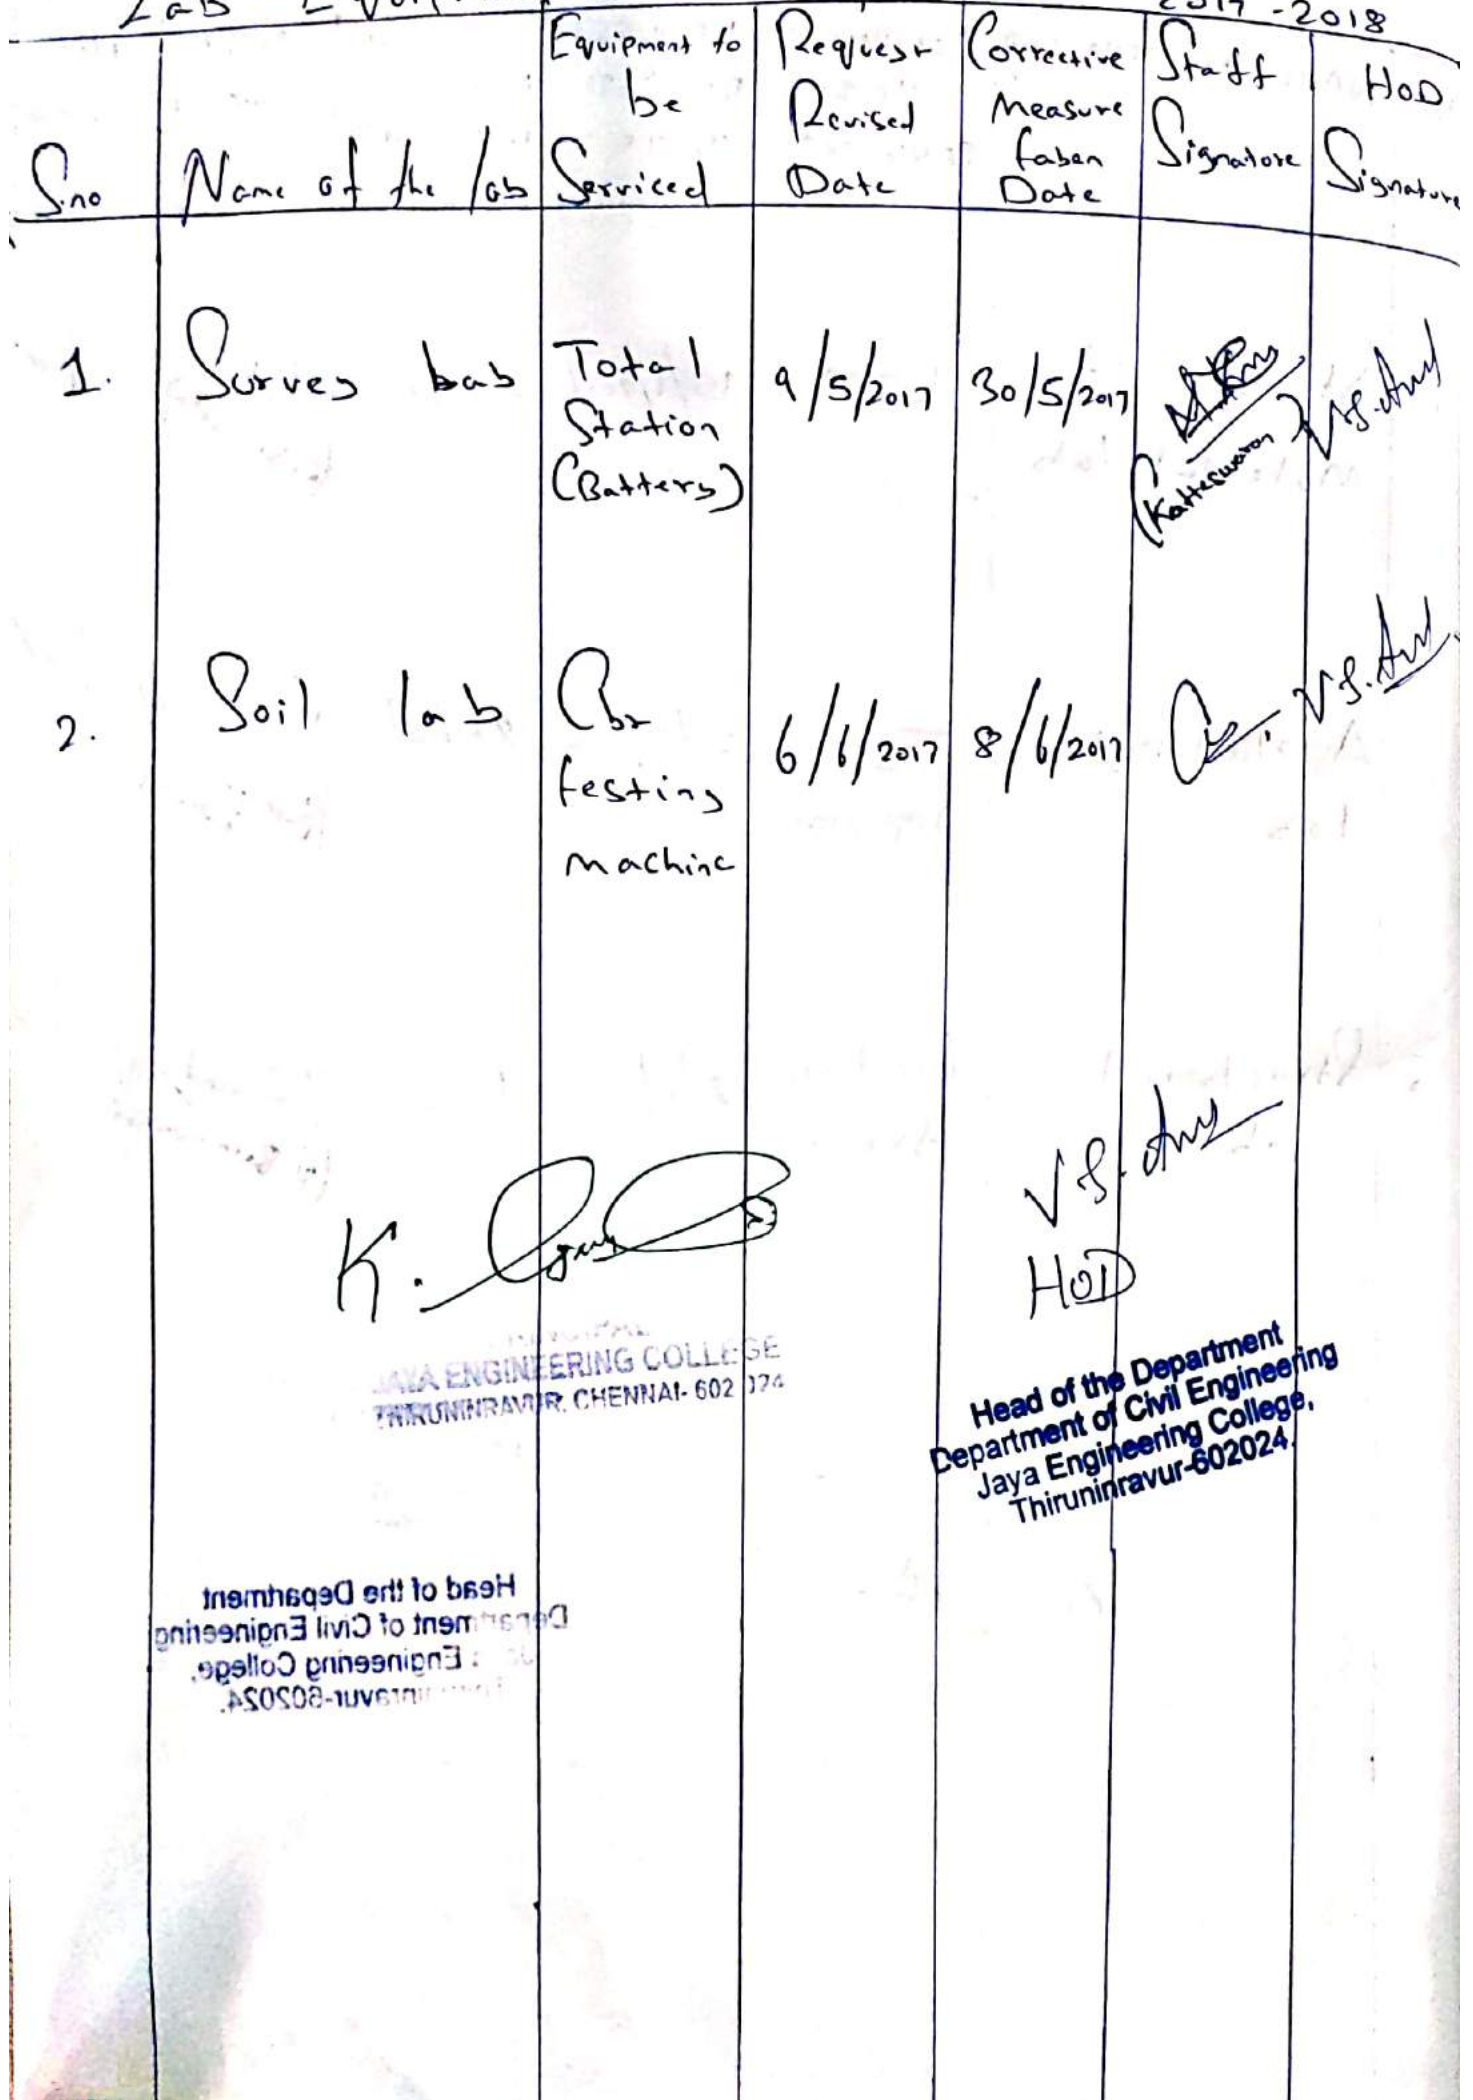 Lab
2017-2018
S.no
Name of the lab
Equipment to
be
Serviced
Request
Revised
Date
Corrective
Measure
taken
Date
Staff
Signature
HOD
Signature
1.
Survey lab
Total
Station
(Battery)
9/5/2017
30/5/2017
(Katteswaran)
2.
Soil lab
Cbr
testing
machine
6/6/2017
8/6/2017
K.
HOD
PRINCIPAL
JAYA ENGINEERING COLLEGE
THIRUNINRAVUR, CHENNAI-602 024
Head of the Department
Department of Civil Engineering
Jaya Engineering College,
Thiruninravur-602024.
Head of the Department
Department of Civil Engineering
Engineering College,
inravur-602024.